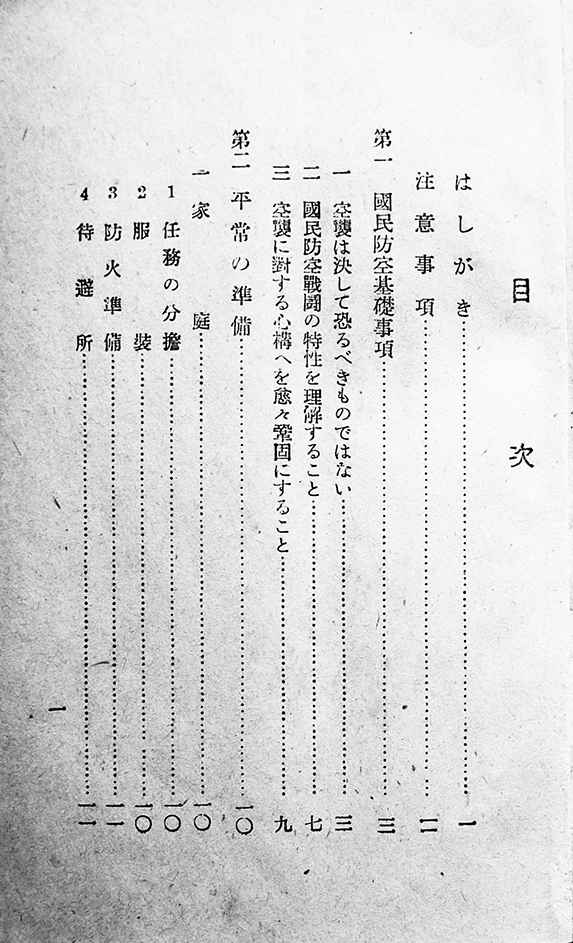 目次
はしがき……一
注意事項……二
第一 國民防空基礎事項……三
一 空襲は決して恐るべきものではない……三
二 國民防空戰鬪の特性を理解すること……七
三 空襲に對する心構へを愈々鞏固にすること……九
第二 平常の準備……一〇
一 家庭……一〇
1 任務の分擔……一〇
2 服裝……一〇
3 防火準備……一一
4 待避所……一一
一